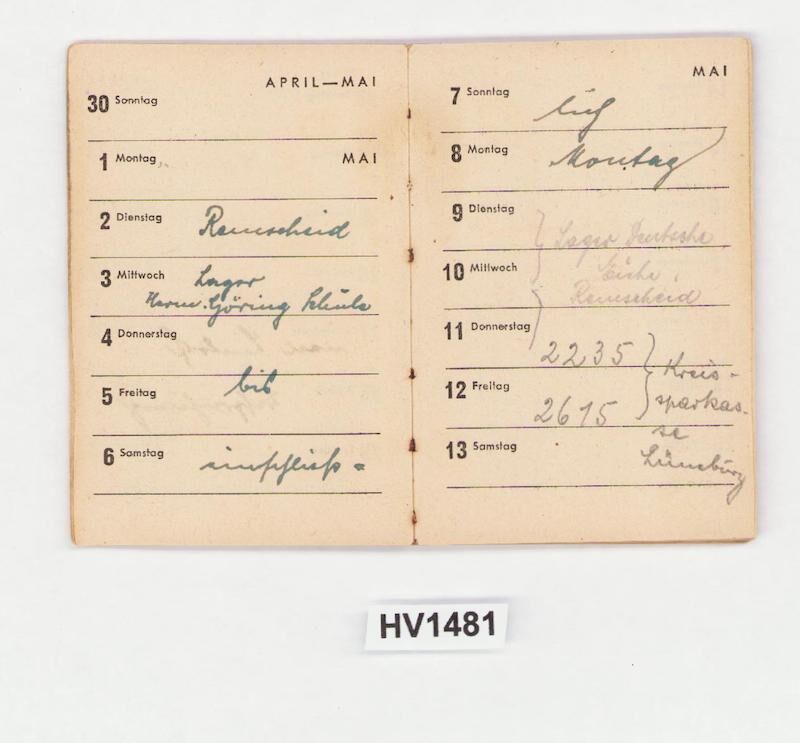 APRIL—MAI
30 Sonntag
1 Montag
MAI
2 Dienstag
Remscheid
3 Mittwoch
Lager
Herm. Göring Schule
4 Donnerstag
5 Freitag
bis
6 Samstag
einschließ=
MAI
7 Sonntag
lich
8 Montag
Montag
9 Dienstag
Lager Deutsche
10 Mittwoch
Eiche,
Remscheid
11 Donnerstag
2235
Kreis-
12 Freitag
sparkas-
2615
se
13 Samstag
Lüneburg
HV1481